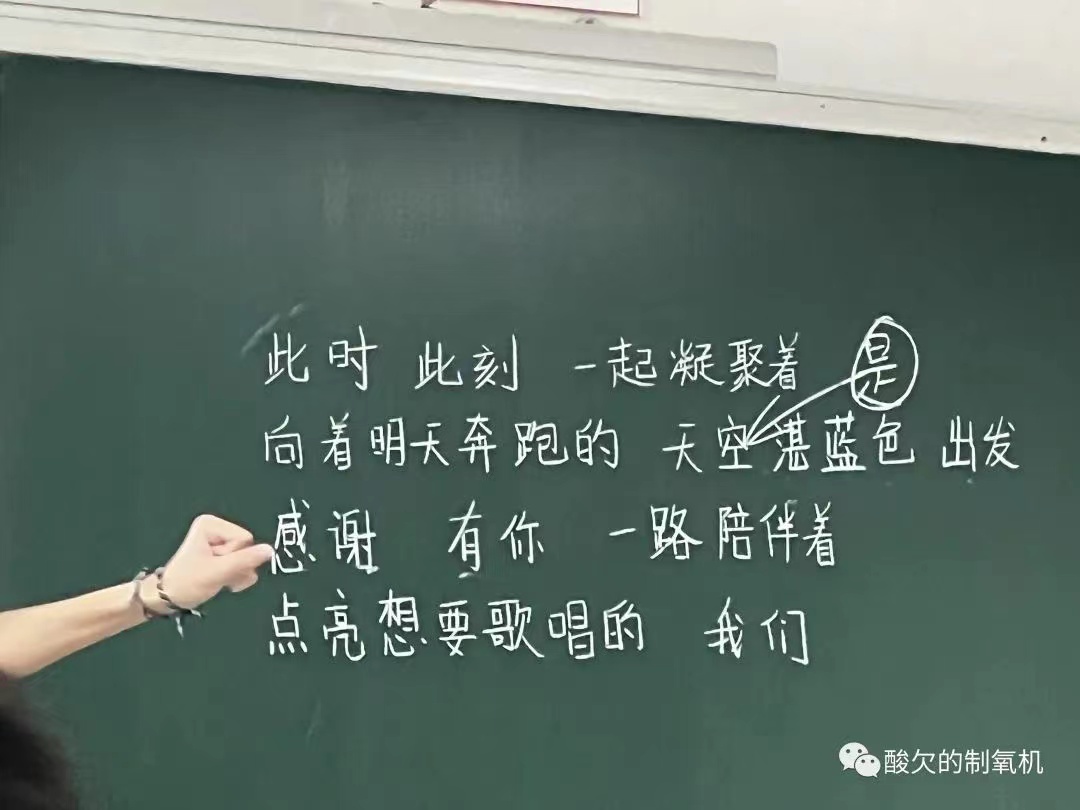 此时 此刻 一起凝聚着 是
向着明天奔跑的 天空湛蓝色 出发
感谢 有你 一路陪伴着
点亮想要歌唱的 我们
酸欠的制氧机